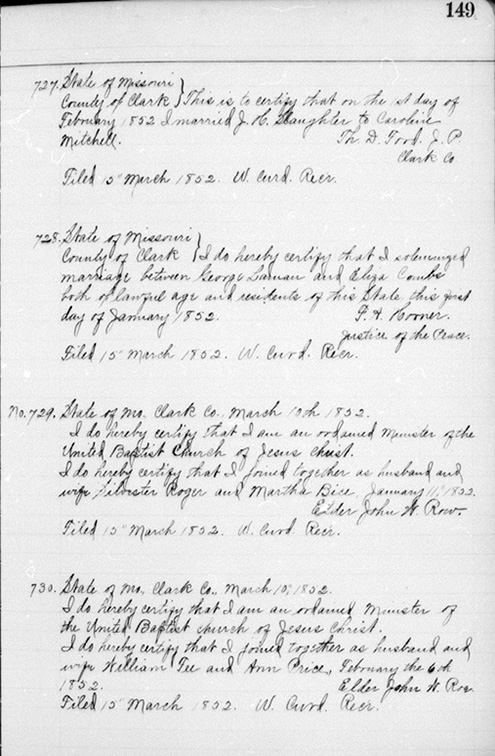 149
727. State of Missouri }
County of Clark } This is to certify that on the 1st day of
February 1852 I married J. H. Slaughter to Caroline
Mitchell. Th. D. Tord. J. P.
Clark Co.
Filed 15" March 1852. W. Curd. Recr.
728. State of Missouri }
County of Clark } I do hereby certify that I solemnized
marriage between George Laman and Eliza Combs
both of lawful age and residents of this State this first
day of January 1852. P. A. Hooner.
Justice of the Peace.
Filed 15" March 1852. W. Curd. Recr.
No. 729. State of Mo. Clark Co., March 10th 1852.
I do hereby certify that I am an ordained Minister of the
United Baptist Church of Jesus Christ.
I do hereby certify that I joined together as husband and
wife Silvester Roger and Martha Bice, January 11" 1852.
Elder John W. Row.
Filed 15" March 1852. W. Curd. Recr.
730. State of Mo. Clark Co., March 10" 1852.
I do hereby certify that I am an ordained Minister of
the United Baptist Church of Jesus Christ.
I do hereby certify that I joined together as husband and
wife William Tee and Ann Price, February the 6th
1852. Elder John W. Row
Filed 15" March 1852. W. Curd. Recr.